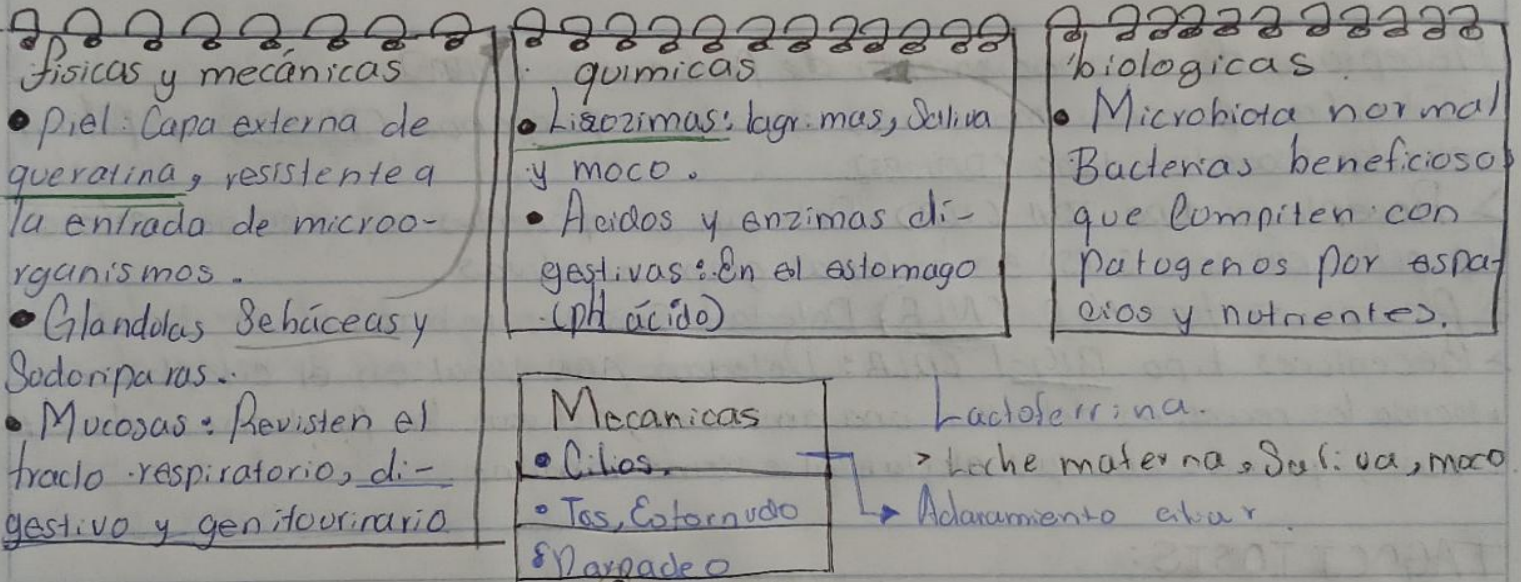 físicas y mecánicas
• Piel: Capa externa de
queratina, resistente a
la entrada de microo-
rganismos.
• Glandolas Sebáceas y
Sodoriparas.
• Mucosas: Revisten el
tracto respiratorio, di-
gestivo y genitourinario
químicas
• Lisozimas: lagrimas, Saliva
y moco.
• Acidos y enzimas di-
gestivas: En el estomago
(pH ácido)
biologicas
• Microbiota normal
Bacterias beneficiosos
que Compiten con
patogenos por espa-
cios y nutrientes.
Mecanicas
• Cilios.
• Tos, Estornudo
Parpadeo
Lactoferrina.
> Leche materna, Saliva, moco
Aclaramiento